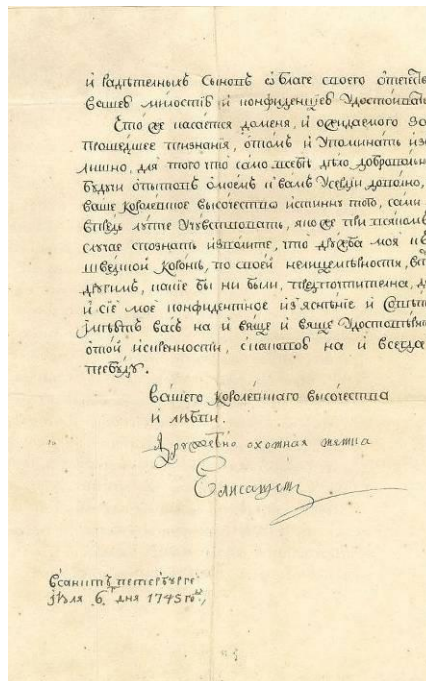 и радѣтелныхъ Сыновъ о благе своего отечест
вашей милости и конфиденцей Удостоиват
Что же касается до меня, и ожидаемого За
прошедшее признания, о томъ и Упоминать из
лишно, для того что само всебѣ дѣло доброволно
будучи опытомъ о моемъ к вамъ Усердии доволно,
ваше королевское высочество истинну того, сами
впредь лутче Учувствовать, яко же при всякомъ
случае спознать изволите, что дружба моя к
шведской коронѣ, по своей нелицемѣрности, в
другимъ, какие бы ни были, предпочтителна, д
и сïе мое конфидентное изъяснѣние и
имѣетъ васъ на и вяще и вяще Удостовѣри
о той искренности, с какова на и всегда
пребуду.
вашего королевскаго высочества
и любви.
дружебно охотная тетка
Елисаветъ
всанктъ петербурге
Июля 6. дня 1745 го.